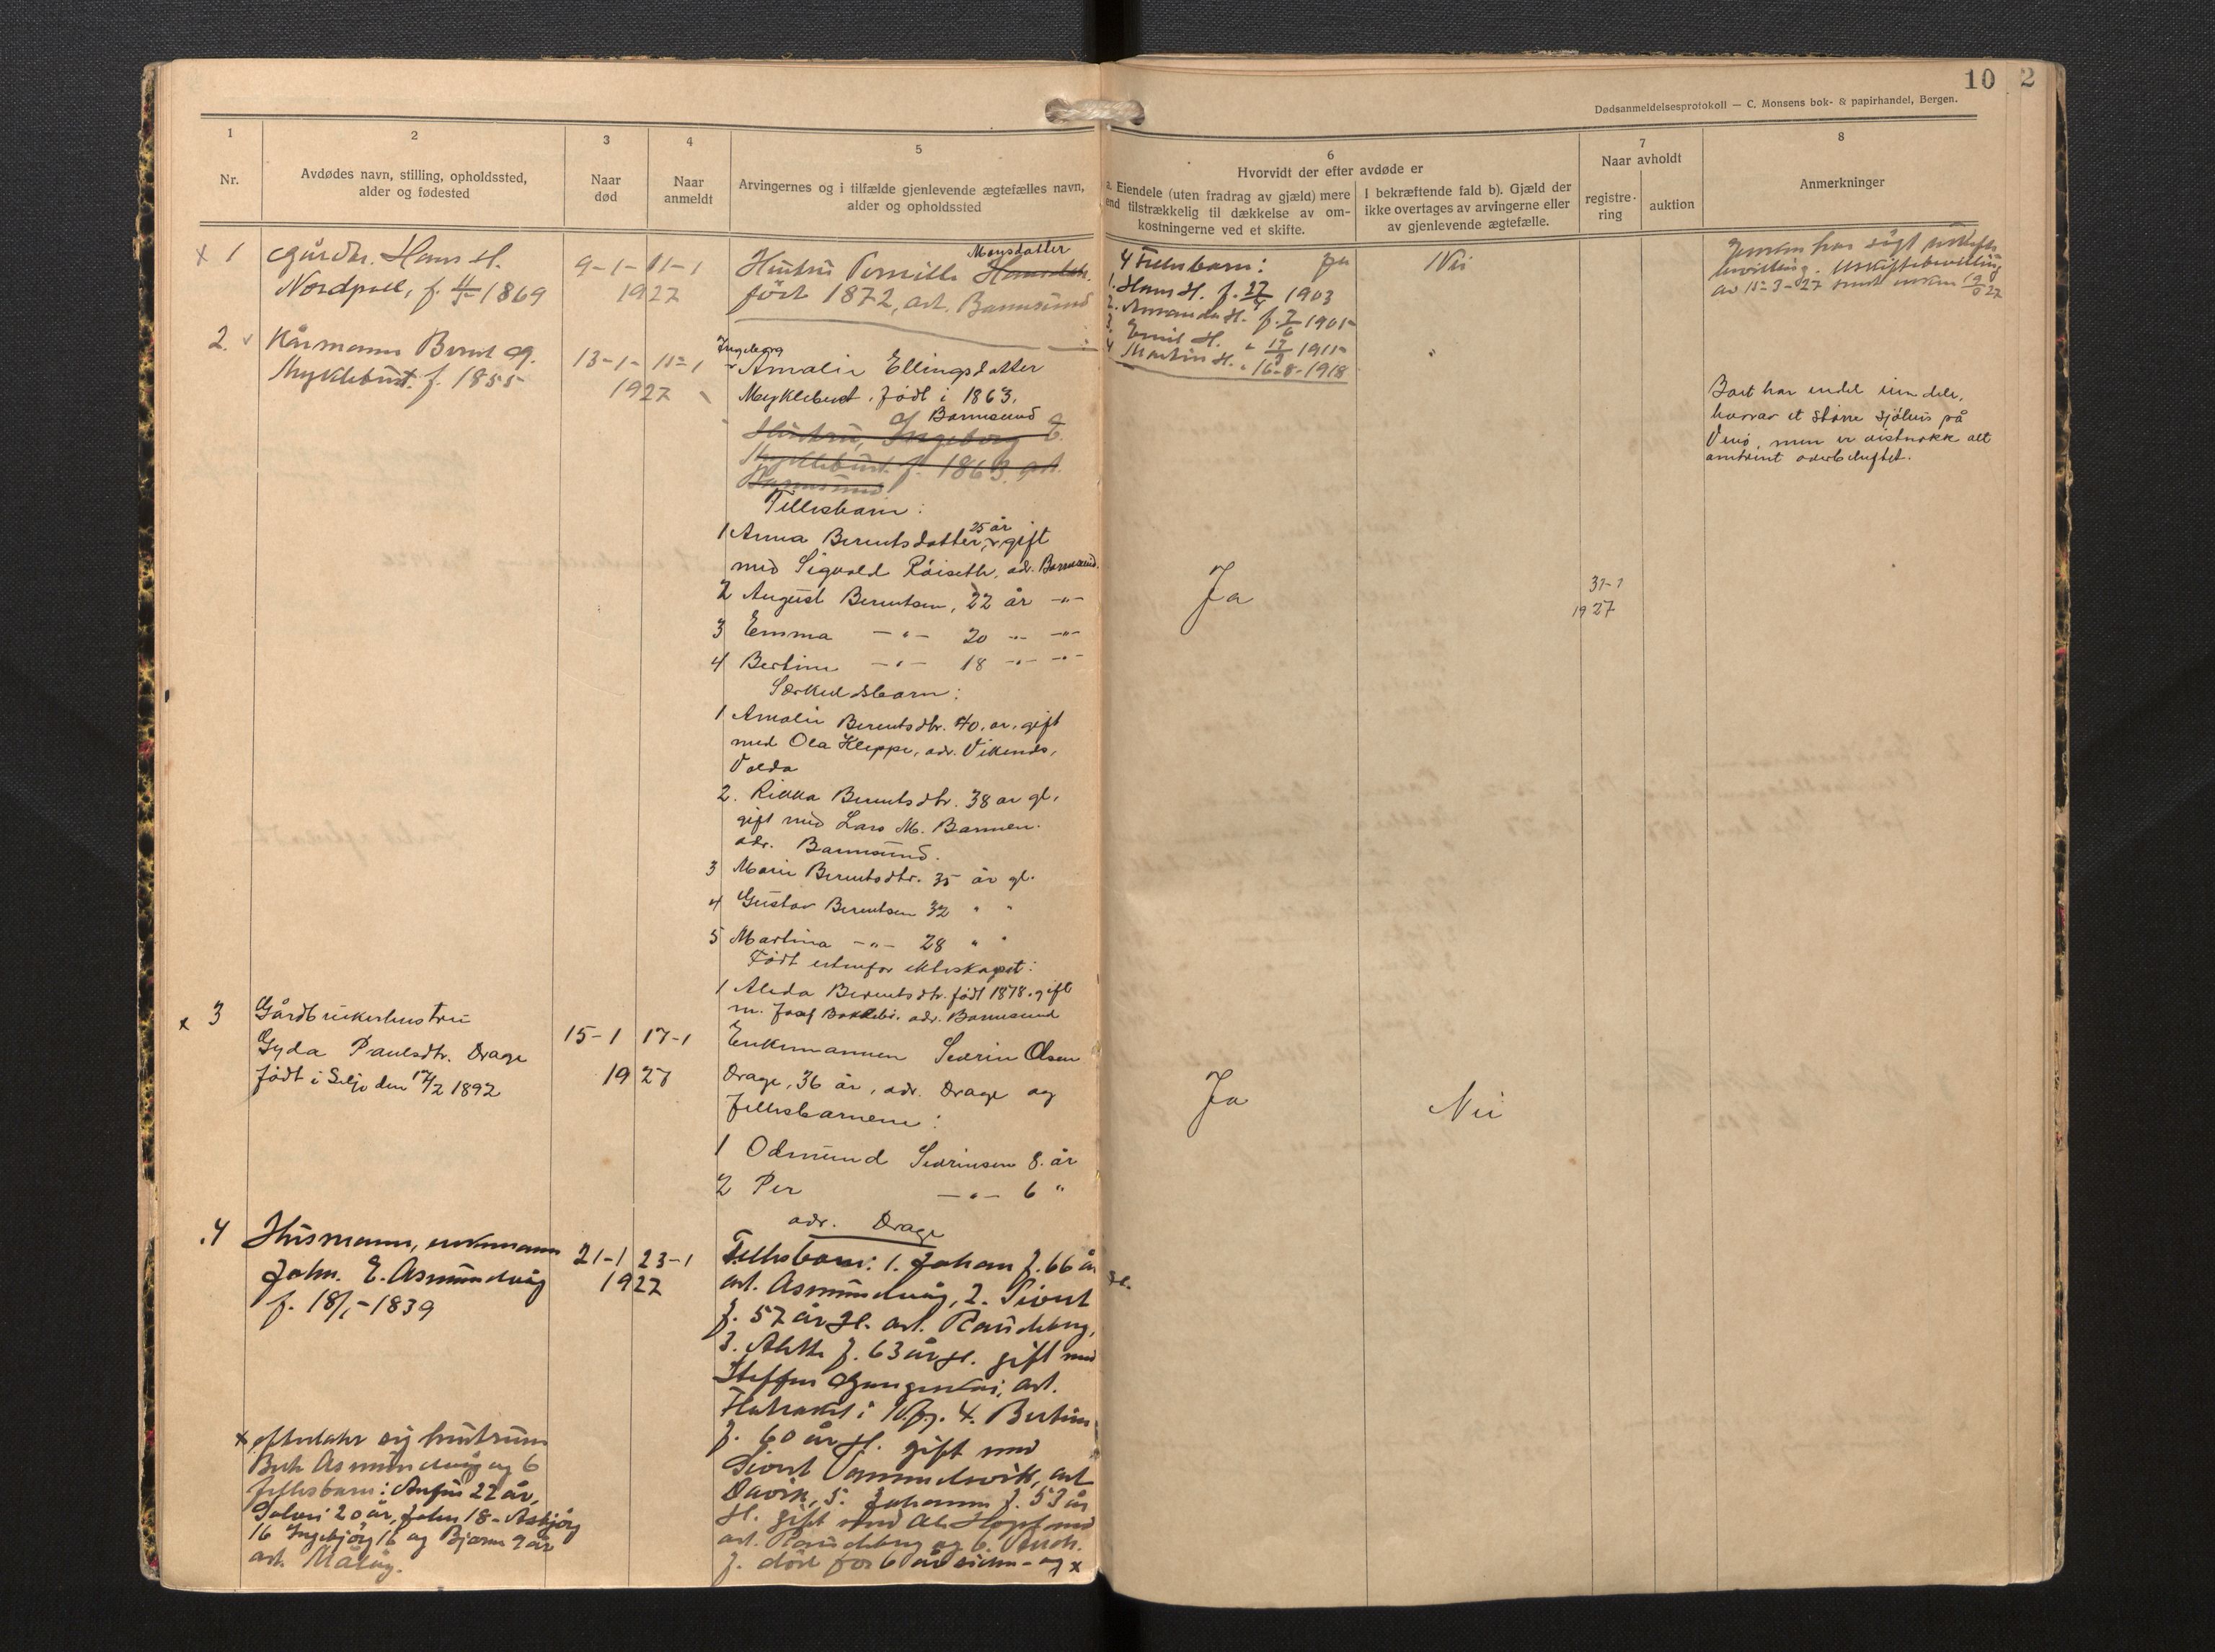 10 2
Dødsanmeldelsesprotokoll — C. Monsens bok- & papirhandel, Bergen.
1
Nr.
2
Avdødes navn, stilling, opholdssted,
alder og fødested
3
Naar
død
4
Naar
anmeldt
5
Arvingernes og i tilfælde gjenlevende ægtefælles navn,
alder og opholdssted
6
Hvorvidt der efter avdøde er
a. Eiendele (uten fradrag av gjæld) mere
end tilstrækkelig til dækkelse av om-
kostningerne ved et skifte.
I bekræftende fald b). Gjæld der
ikke overtages av arvingerne eller
av gjenlevende ægtefælle.
7
Naar avholdt
registre-
ring
auktion
8
Anmerkninger
x 1
Gårdbr. Hans H.
Nordpoll, f. 4/5 1869
9-1- 11-1
1927
Mogsdatter
Hustru Pernille
født 1872, adr. Barmsund
4 Fellesbarn:
1. Hans H. f. 1903
2. Amanda H. f. 7/6 1905
3. Emil H. " 1911
4 Martin H. " 16-8-1918
Ja
Nei
av 15-3-27
2.
Kårmann Bernt
Myklebust. f. 1855
13-1- 15-1
1927
Ingeborg
Amalie Ellingsdatter
Myklebust, født i 1863,
Barmsund
Hustru, Ingeborg E.
Myklebust f. 1863 adr.
Barmsund
Fellesbarn:
1 Anna Berntsdatter, 25 år gift
med Sigvald Röiseth, adr. Barmsund.
2 August Berntsen, 22 år -"-
3 Emma -"- 20 -"- -"-
4 Bertine -"- 18 -"- -"-
Særkuldsbarn:
1 Amalie Berentsdtr. 40, år, gift
med Ola Kleppe, adr. Vikends,
Volda
2. Rikka Berentsdtr. 38 år gl.
gift med Lars M. Barmen.
adr. Barmsund.
3 Marie Berentsdtr. 35 år gl.
4 Gustav Berentsen 32 " "
5 Martina -"- 28 " "
Født utenfor ekteskapet:
1 Alida Berentsdtr. født 1878. gift
m. Josef adr. Barmsund
Ja
31-1
1927
Boet har endel eiendele,
hvorav et større sjøhus på
men er vistnokk alt
omtrent overbeheftet.
x 3
Gårdbrukerhustru
Gyda Paulsdtr. Drage
født i Selje den 17/2 1892
15-1 17-1
19 27
Enkemannen Severin Olsen
Drage, 36 år, adr. Drage og
fellesbarnene:
1 Odmund Severinsen 8. år
2 Per -"- 6 "
adr. Drage
Ja
Nei
.4
Husmann, enkemann
John. E. Åsmundvåg
f. 18/1-1839
21-1 23-1
1927
Fellesbarn: 1. Johan J. 66 år gl.
adr. Åsmundvåg, 2. Sivert
J. 57 år gl. adr. Raudeberg,
3. Alette J. 63 år gl. gift med
Steffen adr.
4. Bertine
J. 60 år gl. gift med
Sivert adr.
Davik, 5. Johanne J. 53 år
gl. gift med
adr. Raudeberg og 6.
J. død for 6 år siden - og x
x efterlater sig hustrum
Åsmundvåg og 6
fellesbarn: 22 år,
20 år, John 18 - Asbjørg
16 Ingebjørg 16 og Bjarne 9 år
adr. Måløy.